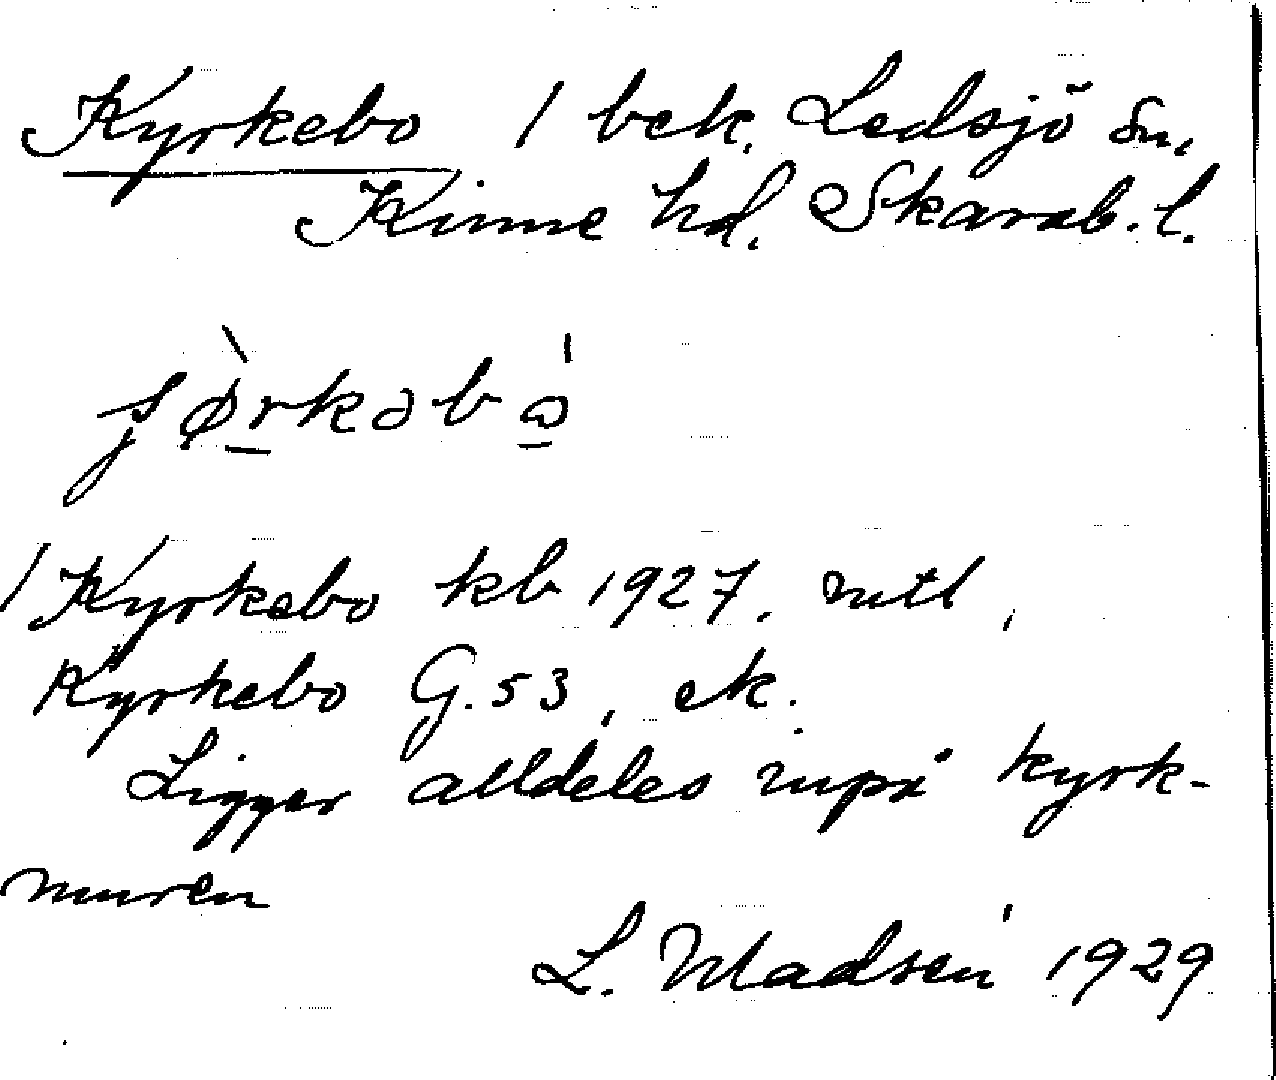 Kyrkebo / bek. Ledsjö sn,
Kinne hd. Skarab. l.
1 Kyrkebo kb 1927.
Kyrkebo G. 53, ek.
Ligger alldeles inpå kyrk-
muren
L. Madsén 1929